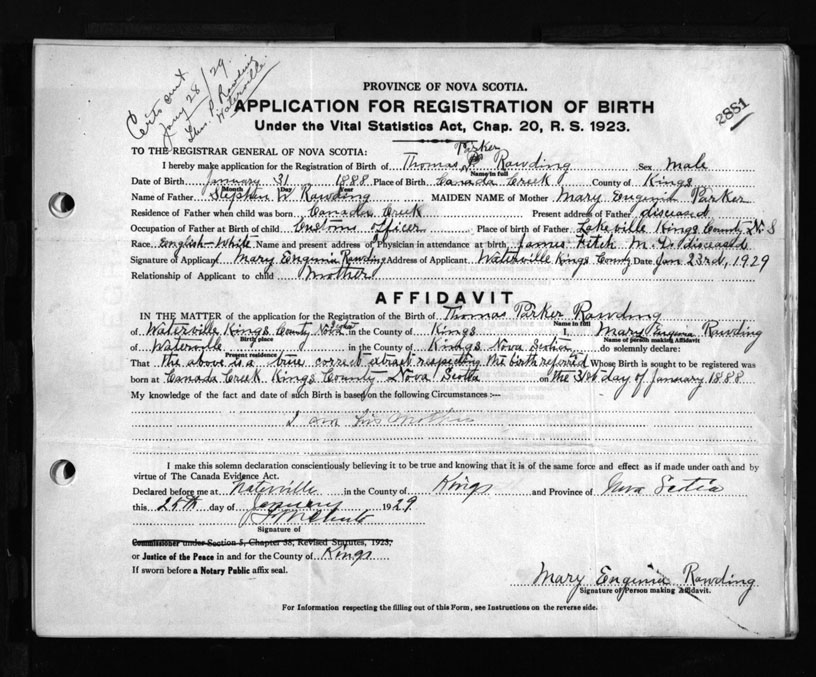 Certs out
Jany 28/29.
Geo. P. Rawding
Waterville.
2881
PROVINCE OF NOVA SCOTIA.
APPLICATION FOR REGISTRATION OF BIRTH
Under the Vital Statistics Act, Chap. 20, R. S. 1923.
TO THE REGISTRAR GENERAL OF NOVA SCOTIA:
Parker
I hereby make application for the Registration of Birth of Thomas Rawding Sex male
Name in full
Date of Birth January 31 1888 Place of Birth Canada Creek County of Kings
Month Day Year
Name of Father Stephen W Rawding MAIDEN NAME of Mother Mary Enginia Parker
Residence of Father when child was born Canada Creek Present address of Father diseased
Occupation of Father at Birth of child Customs officer Place of birth of Father Lakeville Kings County N. S
Race English-White Name and present address of Physician in attendance at birth James Fitch M. D. diseased
Signature of Applicant Mary Enginia Rawding Address of Applicant Waterville Kings County Date Jan 23rd, 1929
Relationship of Applicant to child Mother
AFFIDAVIT
IN THE MATTER of the application for the Registration of the Birth of Thomas Parker Rawding
Name in full
of Waterville Kings County Nova Scotia in the County of Kings I, Mary Enginia Rawding
Birth place Name of person making Affidavit
of Waterville in the County of Kings Nova Scotia do solemnly declare:
Present residence
That the above is a true correct abract respecting the birth referred Whose Birth is sought to be registered was
born at Canada Creek Kings County Nova Scotia on the 31st day of January 1888
My knowledge of the fact and date of such Birth is based on the following Circumstances :—
I am his Mother
I make this solemn declaration conscientiously believing it to be true and knowing that it is of the same force and effect as if made under oath and by
virtue of The Canada Evidence Act.
Declared before me at Waterville in the County of Kings and Province of Nova Scotia
this 25th day of January 1929
Signature of
Commissioner under Section 5, Chapter 38, Revised Statutes, 1923,
or Justice of the Peace in and for the County of Kings
If sworn before a Notary Public affix seal.
Mary Enginia Rawding
Signature of Person making Affidavit.
For Information respecting the filling out of this Form, see Instructions on the reverse side.